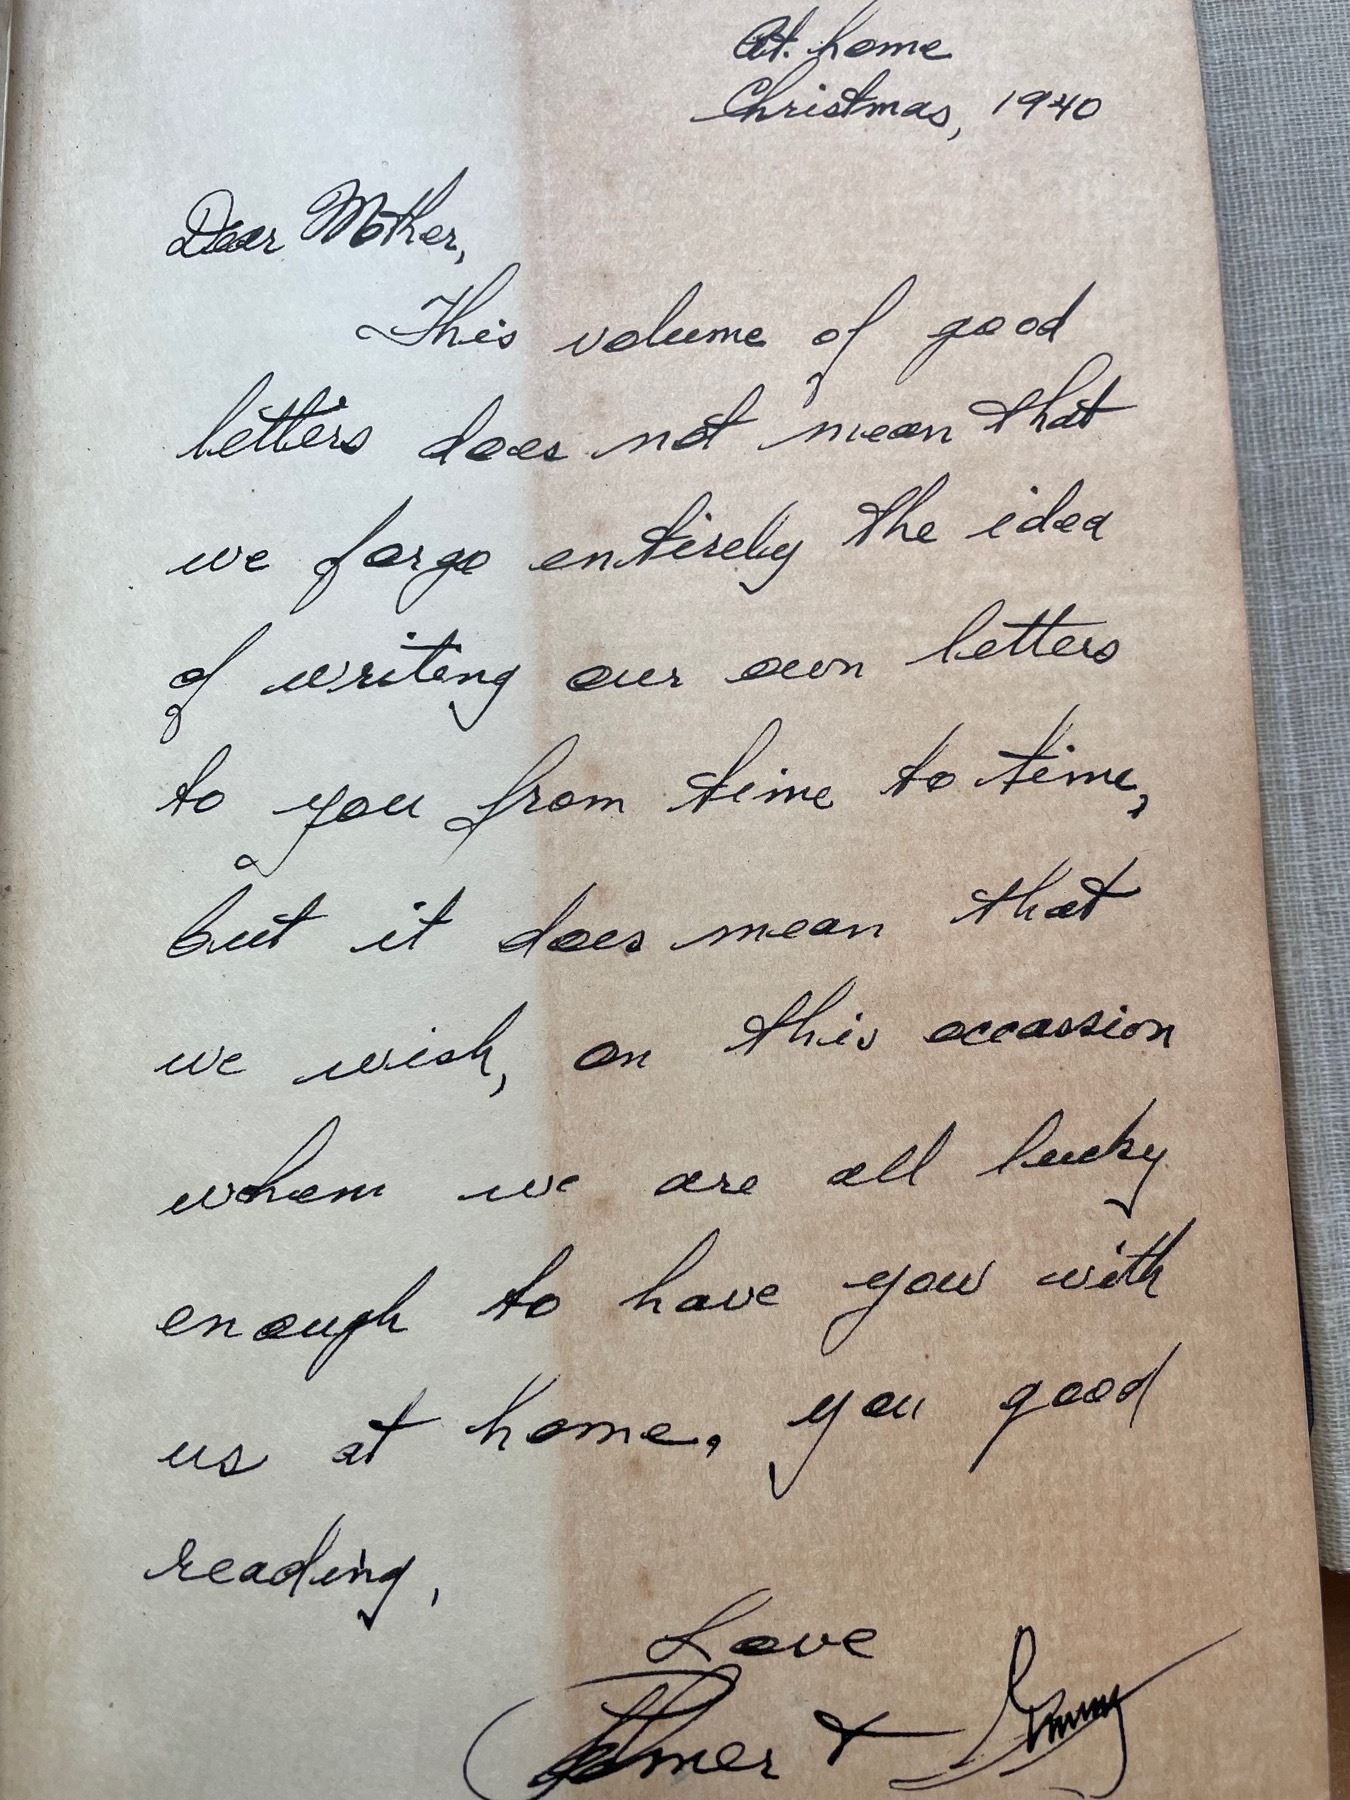 At home
Christmas, 1940
Dear Mother,
This volume of good
letters does not mean that
we forgo entirely the idea
of writing our own letters
to you from time to time,
but it does mean that
we wish, on this occassion
when we are all lucky
enough to have you with
us at home, you good
reading.
Love
Elmer &